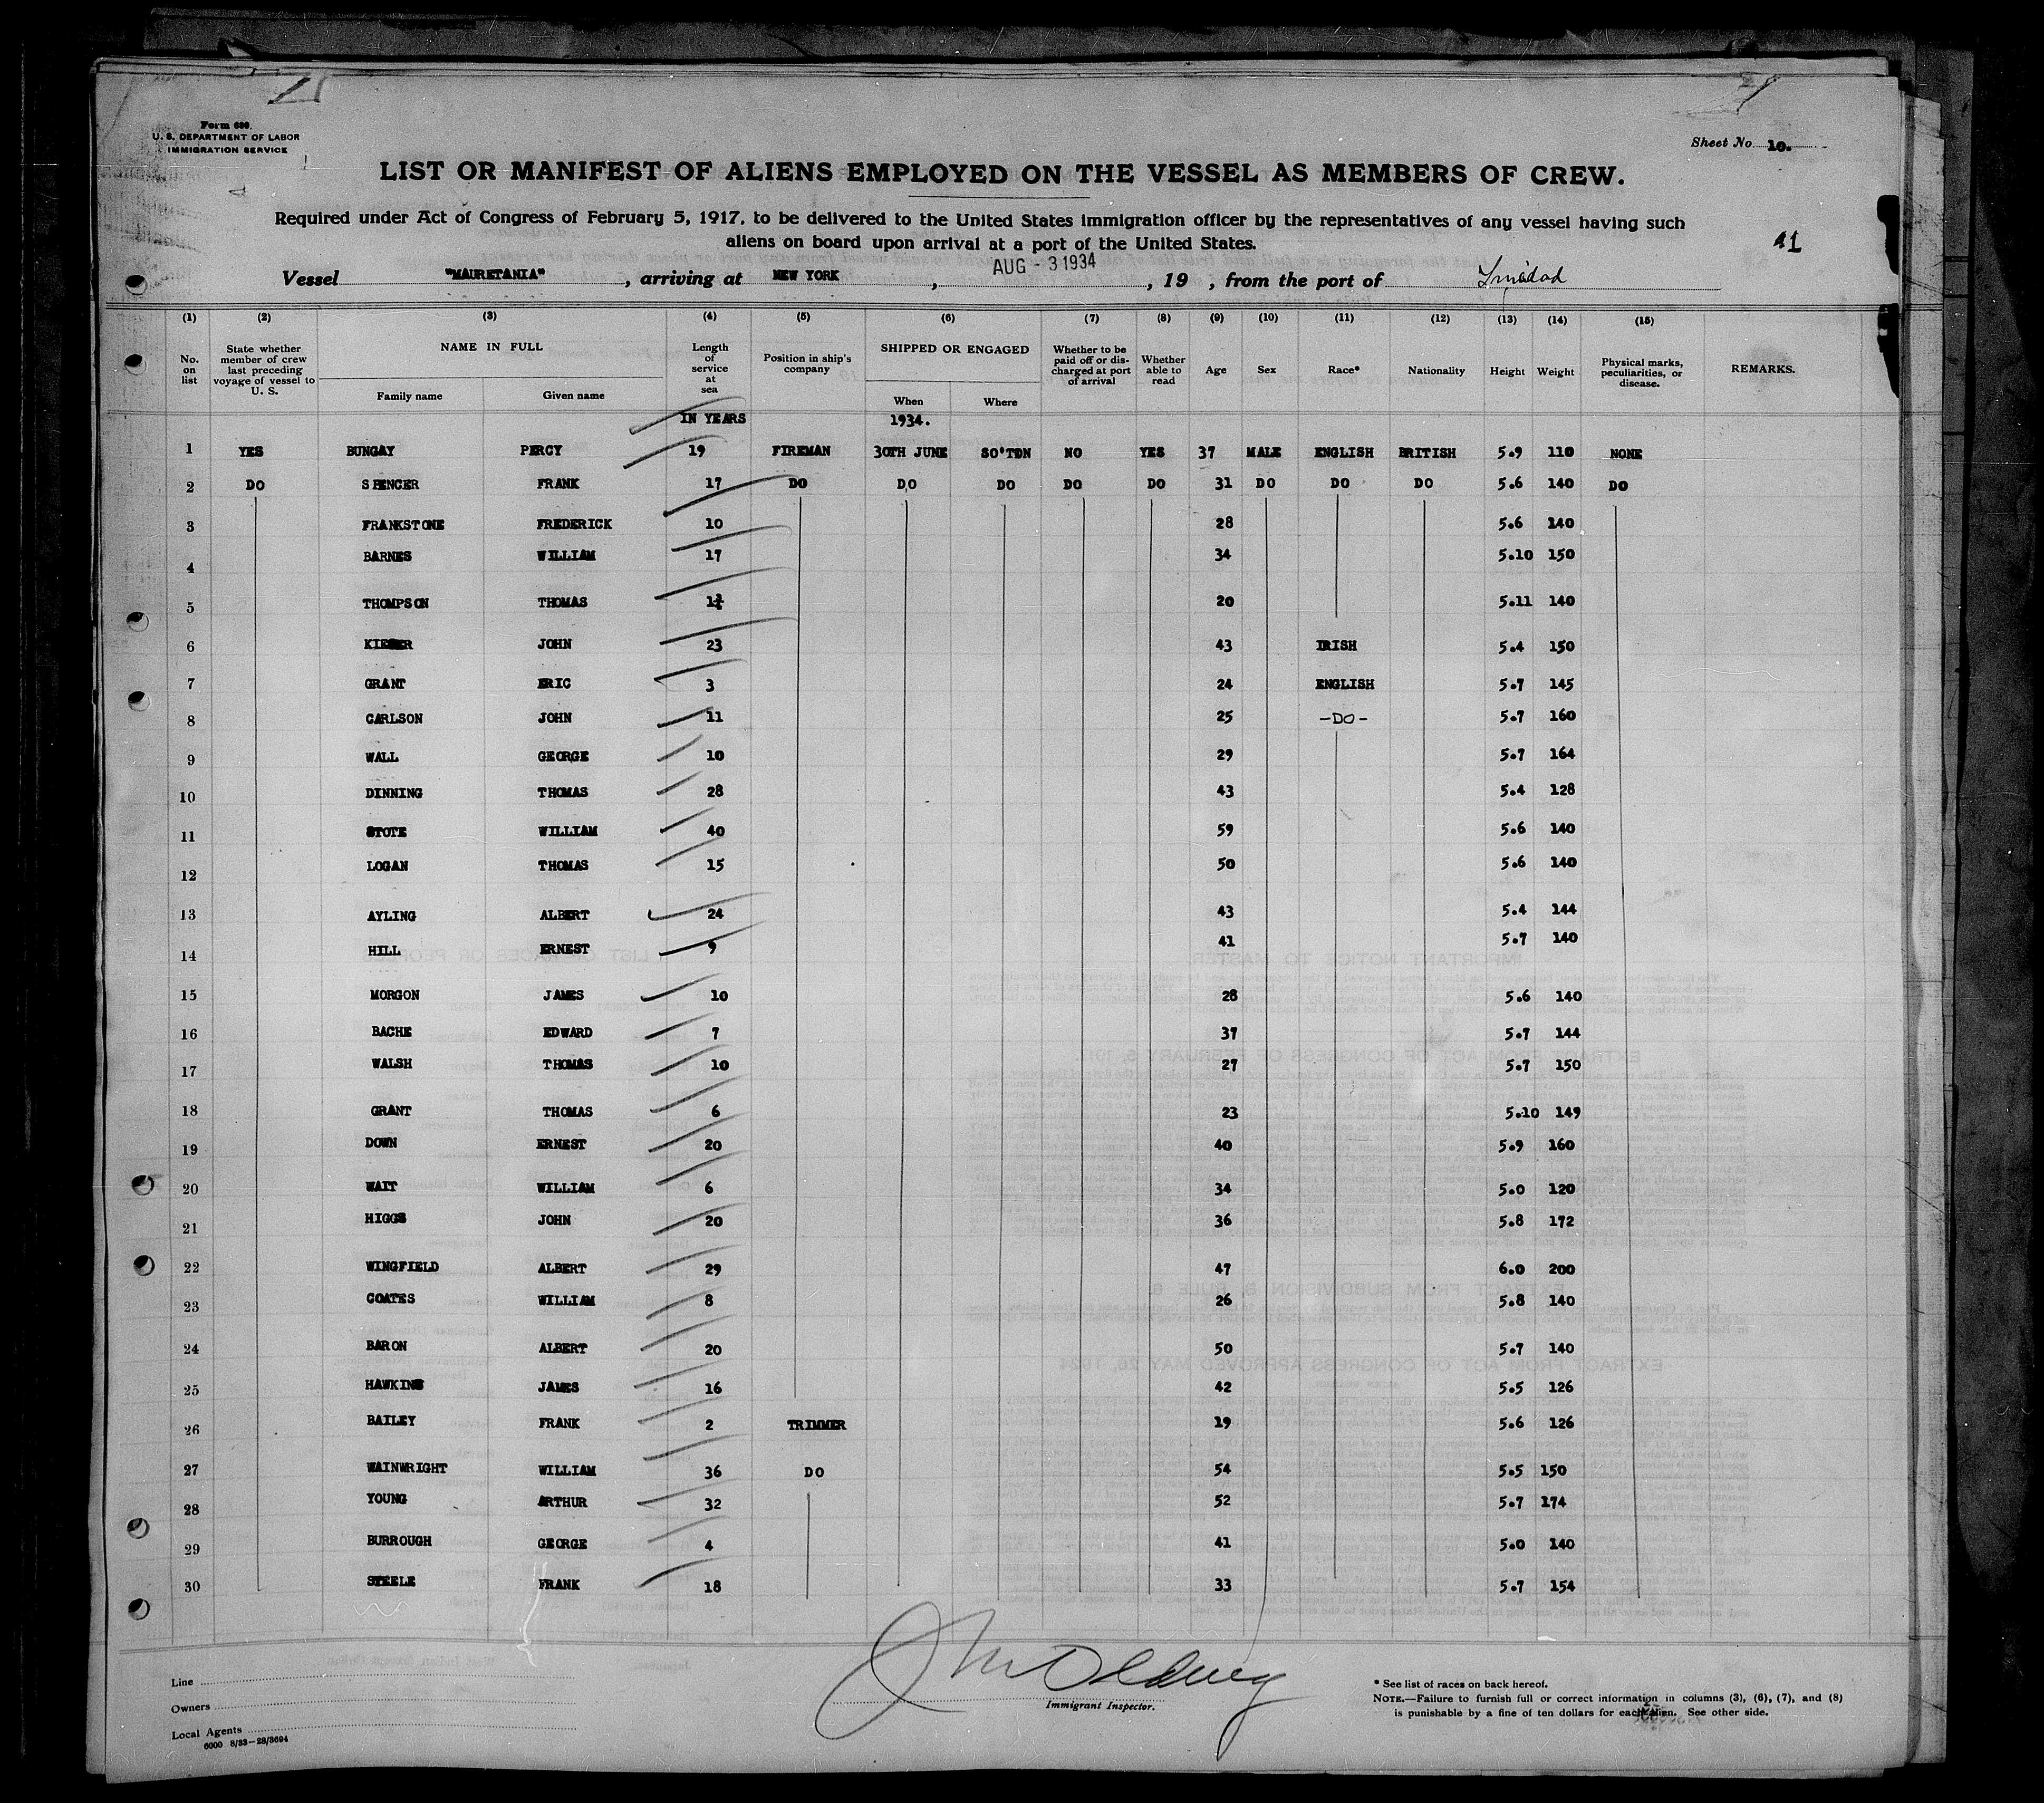 Form 680.
U. S. DEPARTMENT OF LABOR
IMMIGRATION SERVICE
Sheet No. 10.
LIST OR MANIFEST OF ALIENS EMPLOYED ON THE VESSEL AS MEMBERS OF CREW.
Required under Act of Congress of February 5, 1917, to be delivered to the United States immigration officer by the representatives of any vessel having such
aliens on board upon arrival at a port of the United States.
Vessel "MAURETANIA", arriving at NEW YORK, AUG - 3 1934, 19 , from the port of Trinidad
(1) (2) (3) (4) (5) (6) (7) (8) (9) (10) (11) (12) (13) (14) (15)
No. on list State whether member of crew last preceding voyage of vessel to U. S. NAME IN FULL Length of service at sea Position in ship's company SHIPPED OR ENGAGED Whether to be paid off or discharged at port of arrival Whether able to read Age Sex Race* Nationality Height Weight Physical marks, peculiarities, or disease. REMARKS.
Family name Given name When Where
IN YEARS 1934.
1 YES BUNGAY PERCY 19 FIREMAN 30TH JUNE SO'TON NO YES 37 MALE ENGLISH BRITISH 5.9 110 NONE
2 DO SPENCER FRANK 17 DO DO DO DO DO 31 DO DO DO 5.6 140 DO
3 FRANKSTONE FREDERICK 10 28 5.6 140
4 BARNES WILLIAM 17 34 5.10 150
5 THOMPSON THOMAS 20 5.11 140
6 JOHN 23 43 IRISH 5.4 150
7 GRANT ERIC 3 24 ENGLISH 5.7 145
8 CARLSON JOHN 11 25 -DO- 5.7 160
9 WALL GEORGE 10 29 5.7 164
10 DINNING THOMAS 28 43 5.4 128
11 STOTE WILLIAM 40 59 5.6 140
12 LOGAN THOMAS 15 50 5.6 140
13 AYLING ALBERT 24 43 5.4 144
14 HILL ERNEST 9 41 5.7 140
15 MORGON JAMES 10 28 5.6 140
16 BACHE EDWARD 7 37 5.7 144
17 WALSH THOMAS 10 27 5.7 150
18 GRANT THOMAS 6 23 5.10 149
19 DOWN ERNEST 20 40 5.9 160
20 WAIT WILLIAM 6 34 5.0 120
21 HIGGS JOHN 20 36 5.8 172
22 WINGFIELD ALBERT 29 47 6.0 200
23 COATES WILLIAM 8 26 5.8 140
24 BARON ALBERT 20 50 5.7 140
25 HAWKINS JAMES 16 42 5.5 126
26 BAILEY FRANK 2 TRIMMER 19 5.6 126
27 WAINWRIGHT WILLIAM 36 DO 54 5.5 150
28 YOUNG ARTHUR 32 52 5.7 174
29 BURROUGH GEORGE 4 41 5.0 140
30 STEELE FRANK 18 33 5.7 154
Line
Owners
Local Agents
6000 8/33—28/3694
Immigrant Inspector.
* See list of races on back hereof.
NOTE.—Failure to furnish full or correct information in columns (3), (6), (7), and (8)
is punishable by a fine of ten dollars for each alien. See other side.